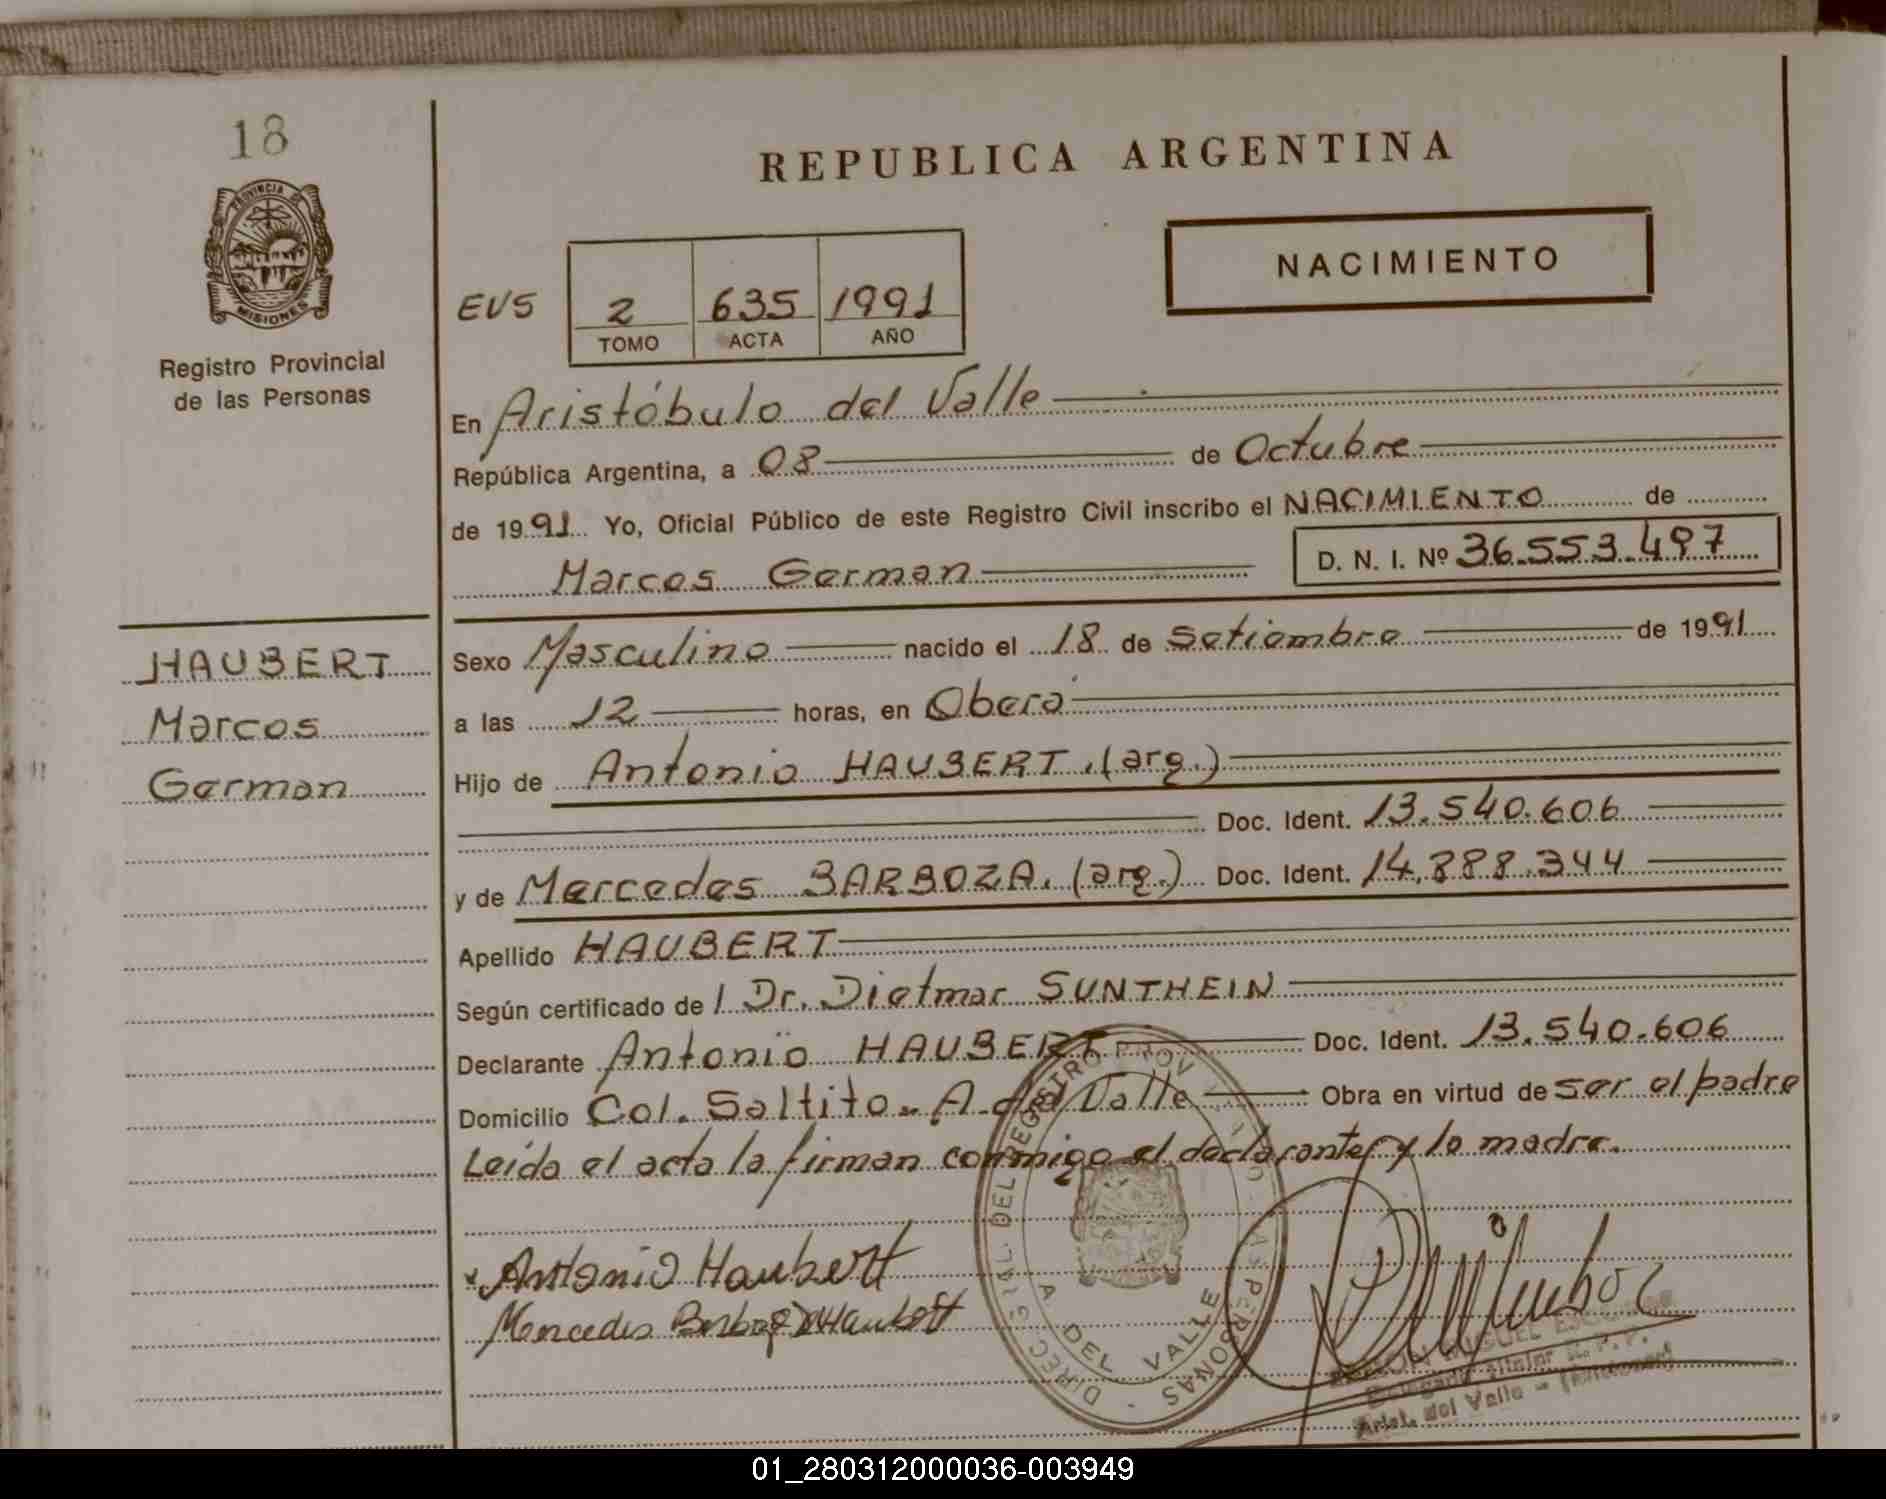 18
PROVINCIA DE
MISIONES
Registro Provincial
de las Personas
REPUBLICA ARGENTINA
NACIMIENTO
EVS
2 635 1991
TOMO ACTA AÑO
En Aristóbulo del Valle
República Argentina, a 08 de Octubre
de 1991 Yo, Oficial Público de este Registro Civil inscribo el NACIMIENTO de
Marcos German D. N. I. Nº 36.553.497
HAUBERT
Marcos
German
Sexo Masculino nacido el 18 de Setiembre de 1991
a las 12 horas, en Oberá
Hijo de Antonio HAUBERT.(arg.)
Doc. Ident. 13.540.606
y de Mercedes BARBOZA. (arg.) Doc. Ident. 14.888.344
Apellido HAUBERT
Según certificado de l Dr. Dietmar SUNTHEIN
Declarante Antonio HAUBERT Doc. Ident. 13.540.606
Domicilio Col. Saltito. A. del Valle Obra en virtud de ser el padre
Leída el acta la firman conmigo el declarante y la madre.
Antonio Haubert
Mercedes Barboza D Haubert
DIREC. GRAL. DEL REGISTRO PROV. DE LAS PERSONAS
A. DEL VALLE
Delegado Titular R. P. P.
Arist. del Valle - (Misiones)
01_280312000036-003949